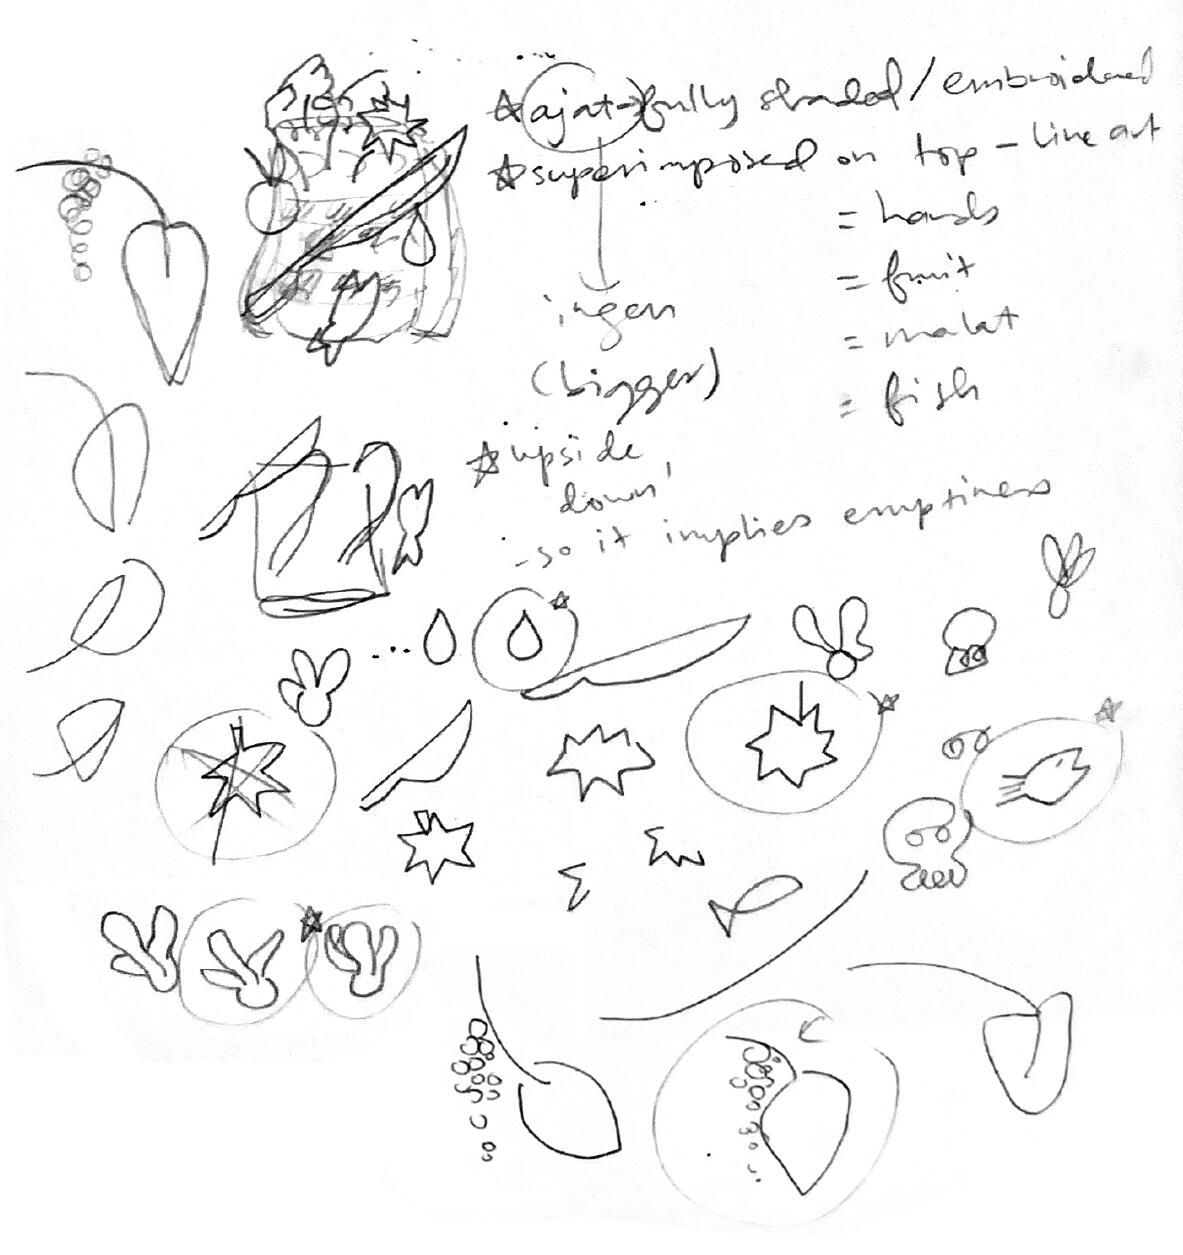 ☆ ajat → fully shaded / embroidered
☆ superimposed on top - line art
= hands
= fruit
= malat
= fish
ingen
(bigger)
☆ upside
down,
- so it implies emptiness